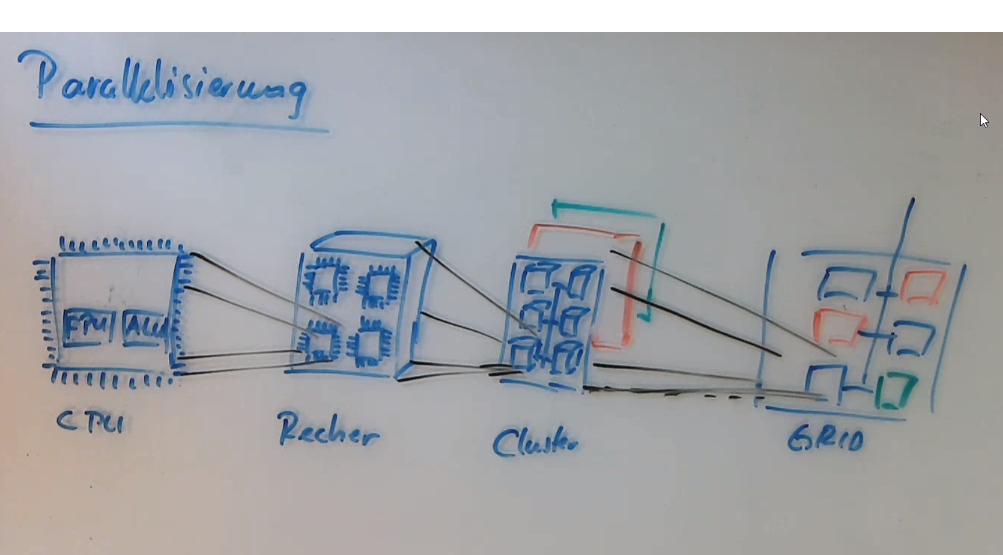 Parallelisierung
FPU ALU
CPU
Recher
Cluster
GRID